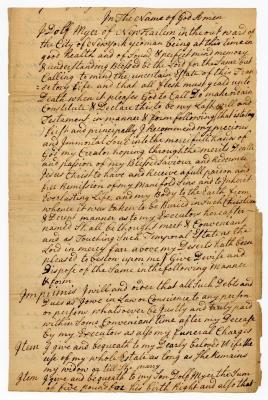 In The Name of God Amen
I Dolf Myer of New Harlem in the out ward of
the City of New York yeoman being at this time in
good Health and of Sound & perfect mind memory
& understanding Blessed be the Lord for the same but
Calling to mind the uncertain state of this Tran=
sitory Life and that all flesh must yeald unto
Death when it please God to Call Do make ordain
Constitute & Declare this to be my Last Will and
Testament in manner & form following that is to say
First and principally I Recommend my precious
and Immortal Soul into the mercifull hands of
my Creator hoping through the merits Death
and passion of my Blessed Saviour and Redeemer
Jesus Christ to have and Receive a full pardon and
free Remission of my Manifold Sins and to Inherit
Everlasting Life and my body to the Earth from
whence it was taken to be Buried in such Christian
& Decent manner as to my Executors hereafter
named Shall be thought meet & Convenient
and as Touching Such Temporal Estate as the
Lord in mercy far above my Deserts hath been
pleased to bestow upon me I Give Devise and
Dispose of the Same in the following Manner
& form
Imprimis I will and order that all Such Debts and
Dues as I owe in Law or Conscience to any person
or persons whatsoever be Justly and truly paid
within Some Convenient time after my Decease
by my Executors as also my Funeral Charges
Item I give and bequeath to my Dearly beloved Wife the
use of my whole Estate as long as She Remains
my widow or till She marry
Item I give and bequeath to my Son Dolf Myer the Sum
of five pound for his Birth Right and also that